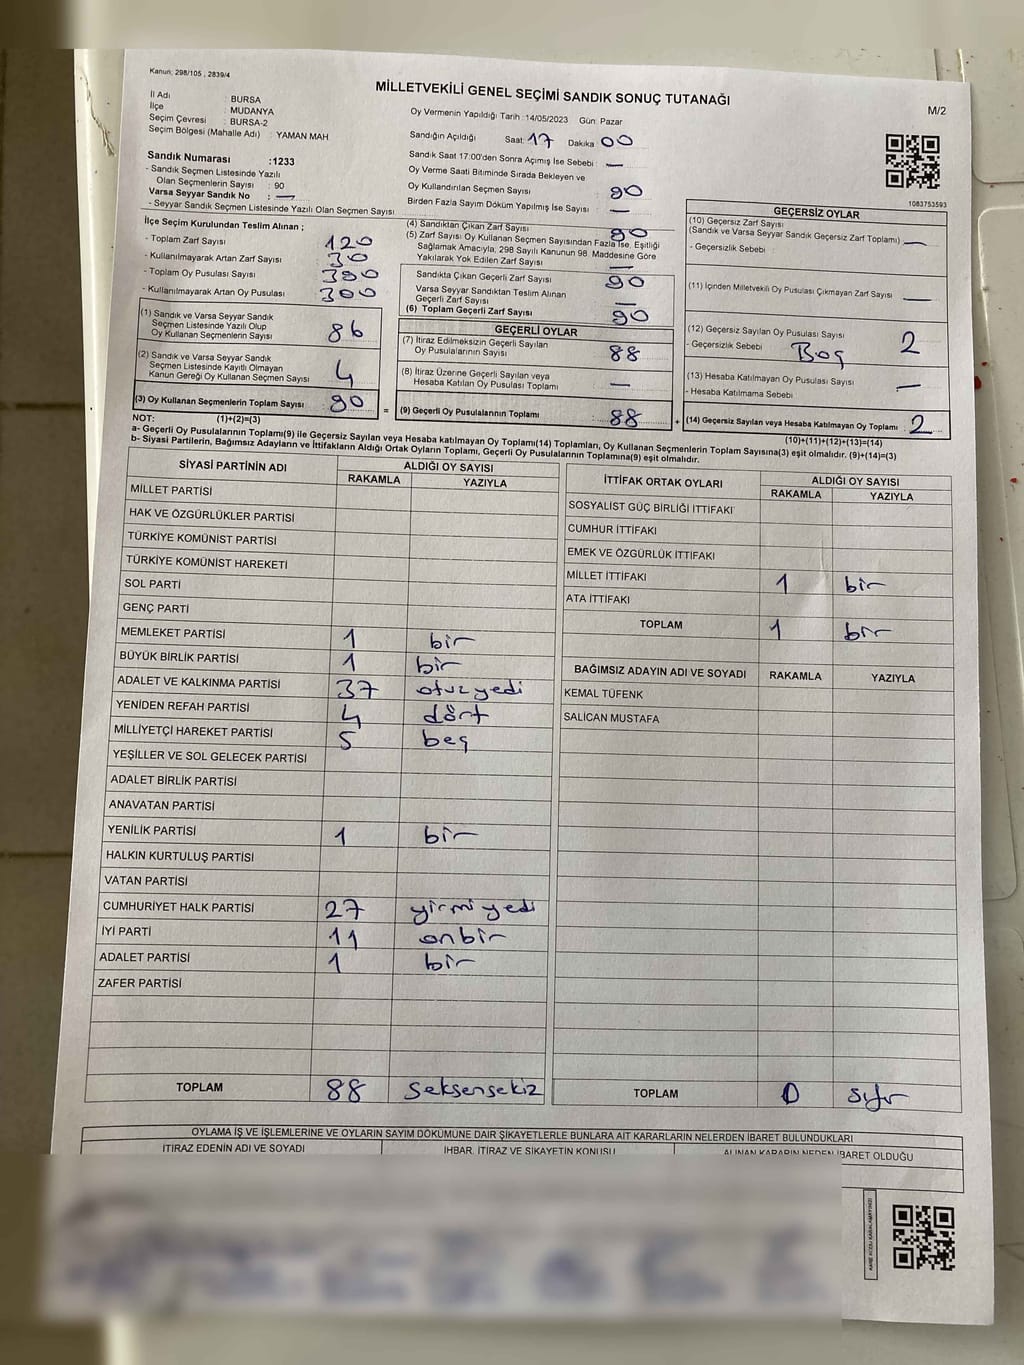 Kanun: 298/105 , 2839/4
MİLLETVEKİLİ GENEL SEÇİMİ SANDIK SONUÇ TUTANAĞI
M/2
İl Adı : BURSA
İlçe : MUDANYA
Seçim Çevresi : BURSA-2
Seçim Bölgesi (Mahalle Adı) : YAMAN MAH
Sandık Numarası :1233
- Sandık Seçmen Listesinde Yazılı
Olan Seçmenlerin Sayısı : 90
Varsa Seyyar Sandık No : —
- Seyyar Sandık Seçmen Listesinde Yazılı Olan Seçmen Sayısı
Oy Vermenin Yapıldığı Tarih :14/05/2023 Gün: Pazar
Sandığın Açıldığı Saat: 17 Dakika: 00
Sandık Saat 17:00'den Sonra Açımış İse Sebebi : —
Oy Verme Saati Bitiminde Sırada Bekleyen ve
Oy Kullandırılan Seçmen Sayısı : 90
Birden Fazla Sayım Döküm Yapılmış İse Sayısı : —
1083753593
İlçe Seçim Kurulundan Teslim Alınan ;
- Toplam Zarf Sayısı : 120
- Kullanılmayarak Artan Zarf Sayısı : 30
- Toplam Oy Pusulası Sayısı : 390
- Kullanılmayarak Artan Oy Pusulası : 300
(1) Sandık ve Varsa Seyyar Sandık
Seçmen Listesinde Yazılı Olup
Oy Kullanan Seçmenlerin Sayısı : 86
(2) Sandık ve Varsa Seyyar Sandık
Seçmen Listesinde Kayıtlı Olmayan
Kanun Gereği Oy Kullanan Seçmen Sayısı : 4
(3) Oy Kullanan Seçmenlerin Toplam Sayısı : 90
(1)+(2)=(3)
(4) Sandıktan Çıkan Zarf Sayısı : 90
(5) Zarf Sayısı Oy Kullanan Seçmen Sayısından Fazla İse, Eşitliği
Sağlamak Amacıyla, 298 Sayılı Kanunun 98. Maddesine Göre
Yakılarak Yok Edilen Zarf Sayısı : —
Sandıkta Çıkan Geçerli Zarf Sayısı : 90
Varsa Seyyar Sandıktan Teslim Alınan
Geçerli Zarf Sayısı : —
(6) Toplam Geçerli Zarf Sayısı : 90
GEÇERLİ OYLAR
(7) İtiraz Edilmeksizin Geçerli Sayılan
Oy Pusulalarının Sayısı : 88
(8) İtiraz Üzerine Geçerli Sayılan veya
Hesaba Katılan Oy Pusulası Toplamı : —
= (9) Geçerli Oy Pusulalarının Toplamı : 88 +
GEÇERSİZ OYLAR
(10) Geçersiz Zarf Sayısı
(Sandık ve Varsa Seyyar Sandık Geçersiz Zarf Toplamı) : —
- Geçersizlik Sebebi
(11) İçinden Milletvekili Oy Pusulası Çıkmayan Zarf Sayısı : —
(12) Geçersiz Sayılan Oy Pusulası Sayısı : 2
- Geçersizlik Sebebi : Boş
(13) Hesaba Katılmayan Oy Pusulası Sayısı : —
- Hesaba Katılmama Sebebi
(14) Geçersiz Sayılan veya Hesaba Katılmayan Oy Toplamı : 2
(10)+(11)+(12)+(13)=(14)
NOT:
a- Geçerli Oy Pusulalarının Toplamı(9) ile Geçersiz Sayılan veya Hesaba katılmayan Oy Toplamı(14) Toplamları, Oy Kullanan Seçmenlerin Toplam Sayısına(3) eşit olmalıdır. (9)+(14)=(3)
b- Siyasi Partilerin, Bağımsız Adayların ve İttifakların Aldığı Ortak Oyların Toplamı, Geçerli Oy Pusulalarının Toplamına(9) eşit olmalıdır.
SİYASİ PARTİNİN ADI ALDIĞI OY SAYISI
RAKAMLA YAZIYLA
MİLLET PARTİSİ
HAK VE ÖZGÜRLÜKLER PARTİSİ
TÜRKİYE KOMÜNİST PARTİSİ
TÜRKİYE KOMÜNİST HAREKETİ
SOL PARTİ
GENÇ PARTİ
MEMLEKET PARTİSİ 1 bir
BÜYÜK BİRLİK PARTİSİ 1 bir
ADALET VE KALKINMA PARTİSİ 37 otuzyedi
YENİDEN REFAH PARTİSİ 4 dört
MİLLİYETÇİ HAREKET PARTİSİ 5 beş
YEŞİLLER VE SOL GELECEK PARTİSİ
ADALET BİRLİK PARTİSİ
ANAVATAN PARTİSİ
YENİLİK PARTİSİ 1 bir
HALKIN KURTULUŞ PARTİSİ
VATAN PARTİSİ
CUMHURİYET HALK PARTİSİ 27 yirmi yedi
İYİ PARTİ 11 onbir
ADALET PARTİSİ 1 bir
ZAFER PARTİSİ
TOPLAM 88 seksensekiz
İTTİFAK ORTAK OYLARI ALDIĞI OY SAYISI
RAKAMLA YAZIYLA
SOSYALİST GÜÇ BİRLİĞİ İTTİFAKI
CUMHUR İTTİFAKI
EMEK VE ÖZGÜRLÜK İTTİFAKI
MİLLET İTTİFAKI 1 bir
ATA İTTİFAKI
TOPLAM 1 bir
BAĞIMSIZ ADAYIN ADI VE SOYADI RAKAMLA YAZIYLA
KEMAL TÜFENK
SALİCAN MUSTAFA
TOPLAM 0 sıfır
OYLAMA İŞ VE İŞLEMLERİNE VE OYLARIN SAYIM DÖKÜMÜNE DAİR ŞİKAYETLERLE BUNLARA AİT KARARLARIN NELERDEN İBARET BULUNDUKLARI
İTİRAZ EDENİN ADI VE SOYADI İHBAR, İTİRAZ VE ŞİKAYETİN KONUSU ALINAN KARARIN NEDEN İBARET OLDUĞU